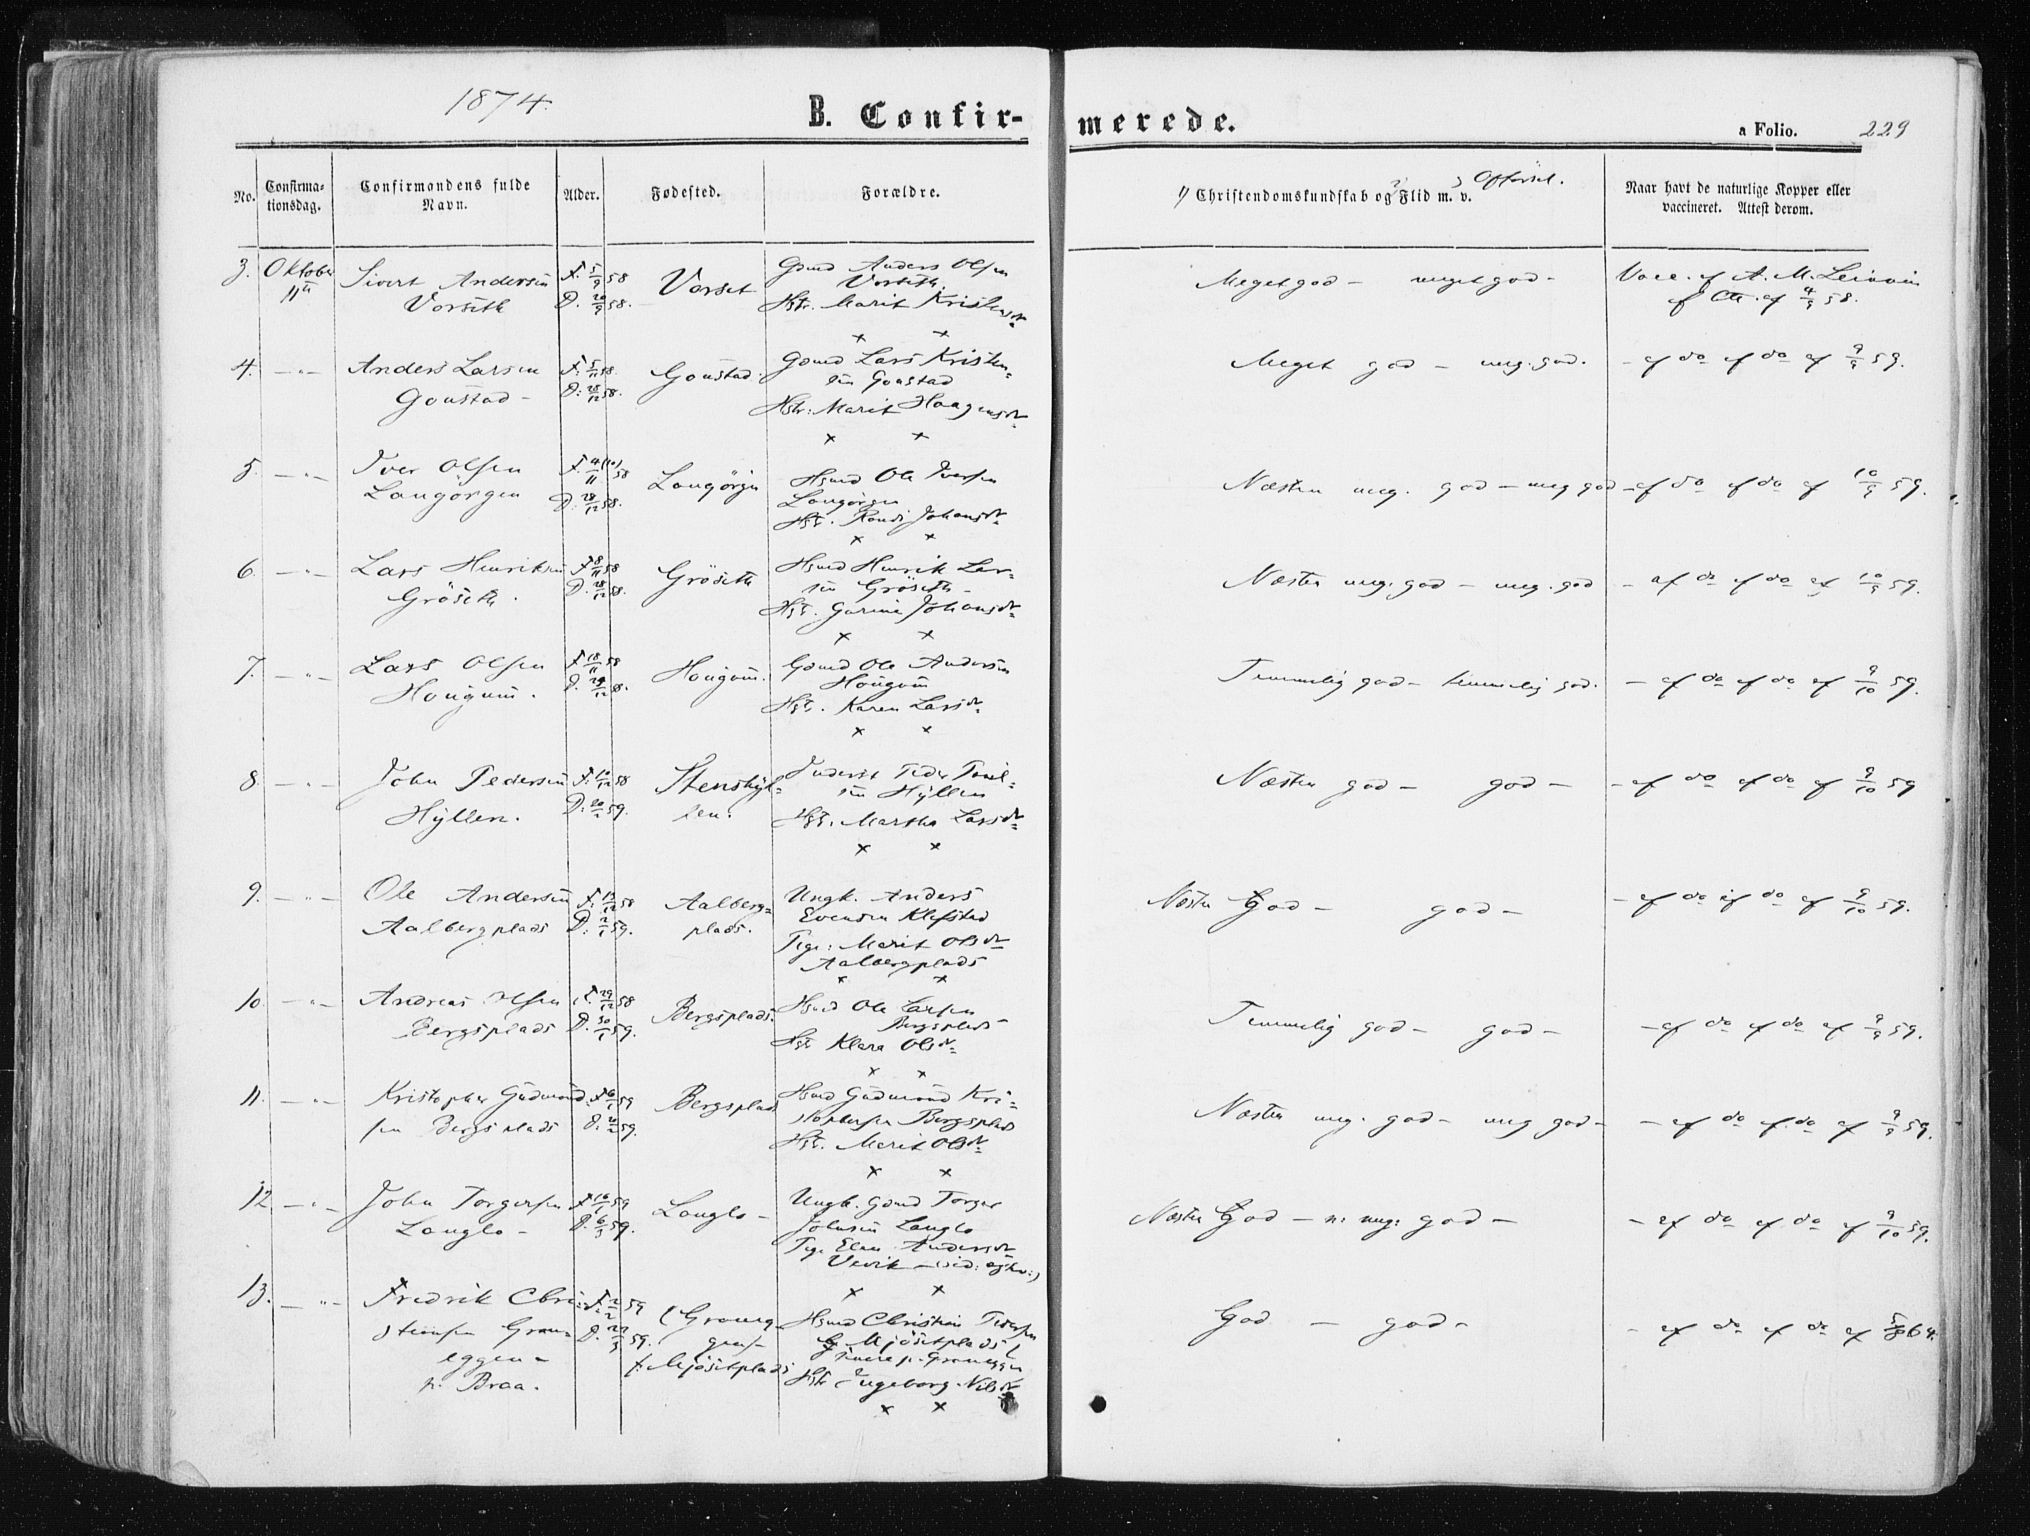 1874.
B. Confir-
merede.
a Folio. 229
No.
Confirma-
tionsdag.
Confirmandens fulde
Navn.
Alder.
Fødested.
Forældre.
1) Christendomskundskab og 2) Flid m. v. 3) Opførsel.
Naar havt de naturlige Kopper eller
vaccineret. Attest derom.
3. Oktober 11te
Sivert Andersen
Vorseth
F. 5/9 58
D. 20/9 58.
Vorset
Gmd Anders Olsen
Vorseth.
Hst. Marit
Meget god — meget god —
Vacc. af A. M.
af 4/9 58.
4. — " —
Anders Larsen
Goustad —
F. 5/11 58.
D. 28/12 58.
Goustad.
Gmd Lars Kristen-
sen Goustad
Hst: Marit Haagensdt
Meget god — meg. god.
— af do af do af 9/9 59.
5. — " —
Iver Olsen
Langörgen
F. 4(10)/11 58
D. 28/12 58.
Langörgen
Hsmd Ole Iversen
Langörgen
Hst. Randi Johansdt
Næsten meg. god — meg god
— af do af do af 10/9 59.
6. — " —
Lars Henriksen
Gröseth.
F. 8/11 58
D. 28/12 58.
Gröseth
Hsmd Henrik Lar-
sen Gröseth —
Hst. Gurine Johansdt
Næsten meg. god — meg. god
— af do af do af 10/9 59.
7. — " —
Lars Olsen
Hougum.
F. 18/11 58
D. 28/12 58.
Hougum.
Gmd Ole Andersen
Hougum
Hst. Karen Larsdt
Temmelig god — temmelig god.
— af do af do af 9/10 59.
8. — " —
John Pedersen
Hÿllen.
F. 10/12 58
D. 20/2 59.
Stenshÿl-
len.
Inderst Peder
sen Hÿllen
Hst. Martha Larsdt
Næsten god — god —
— af do af do af 9/10 59
9. — " —
Ole Andersen
Aalbergplads
D. 2/1 59.
Aalberg-
plads.
Ungk. Anders
Evensen Klefstad
Pige: Marit Olsdt
Aalbergplads
Næsten God — god —
— af do af do af 9/10 59.
10. — " —
Andreas Olsen
Bergsplads
F. 29/12 58
D. 30/1 59.
Bergsplads.
Hsmd Ole Larsen
Bergsplads
Hst Klara Olsdt
Temmelig god — god —
— af do af do af 9/9 59.
11. — " —
Kristopher Gudmund-
sen Bergsplads
F. 6/1 59
Bergsplads
Hsmd Gudmund Kri-
stophersen Bergsplads
Hst. Marit Olsdt
Næsten meg. god — meg god —
— af do af do af 9/9 59.
12. — " —
John Torgersen
Langlo —
F. 16/1 59
D. 6/3 59.
Langlo —
Ungk. Gmd Torger
Johnsen Langlo
Pige Elen Andersdt
Næsten God — n: meg: god —
— af do af do af 9/10 59.
13. — " —
Fredrik Chri-
stiansen Gran-
eggen
p. Braa.
F. 2/2 59
Mjösetplads
Hsmd Christian Pedersen
Mjösetplads
senere p. Graneggen
Hst Ingeborg Nilsdt
God — god —
— af do af do af 5/8 64.